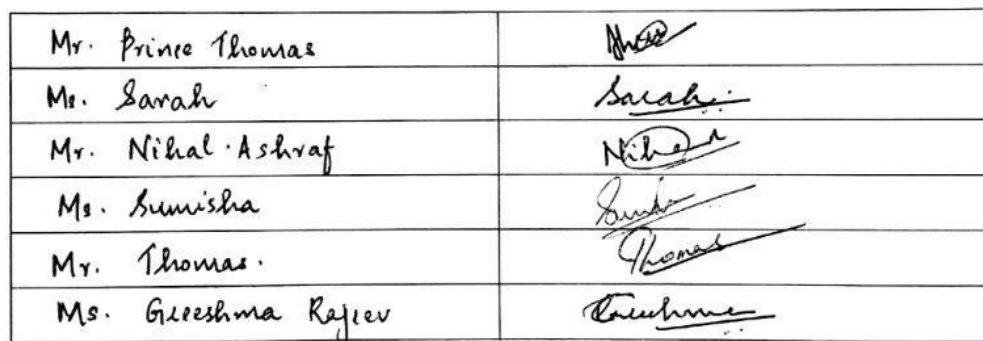 Mr. Prince Thomas
Ms. Sarah Sarah
Mr. Nihal Ashraf
Ms. Sumisha
Mr. Thomas. Thomas
Ms. Greeshma Rajeev